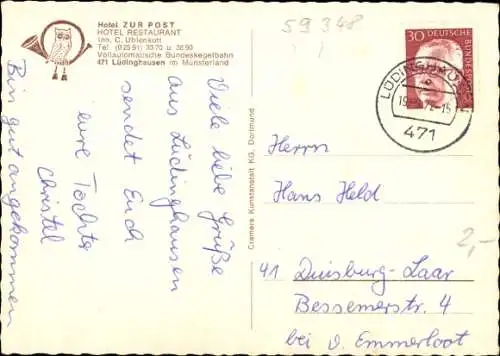 Hotel ZUR POST
HOTEL RESTAURANT
Inh. C. Uhlenkott
Tel (02591) 3370 u 3890
Vollautomatische Bundeskegelbahn
471 Lüdinghausen im Münsterland
59348
30 DEUTSCHE
BUNDESPOST
LÜDINGHAUSEN
471
Viele liebe Grüße
aus Lüdinghausen
sendet Euch
eure Tochter
Christel
Bin gut angekommen
Cramers Kunstanstalt KG, Dortmund
Herrn
Hans Held
2,-
41 Duisburg-Laar
Bessemerstr. 4
bei v. Emmerloot